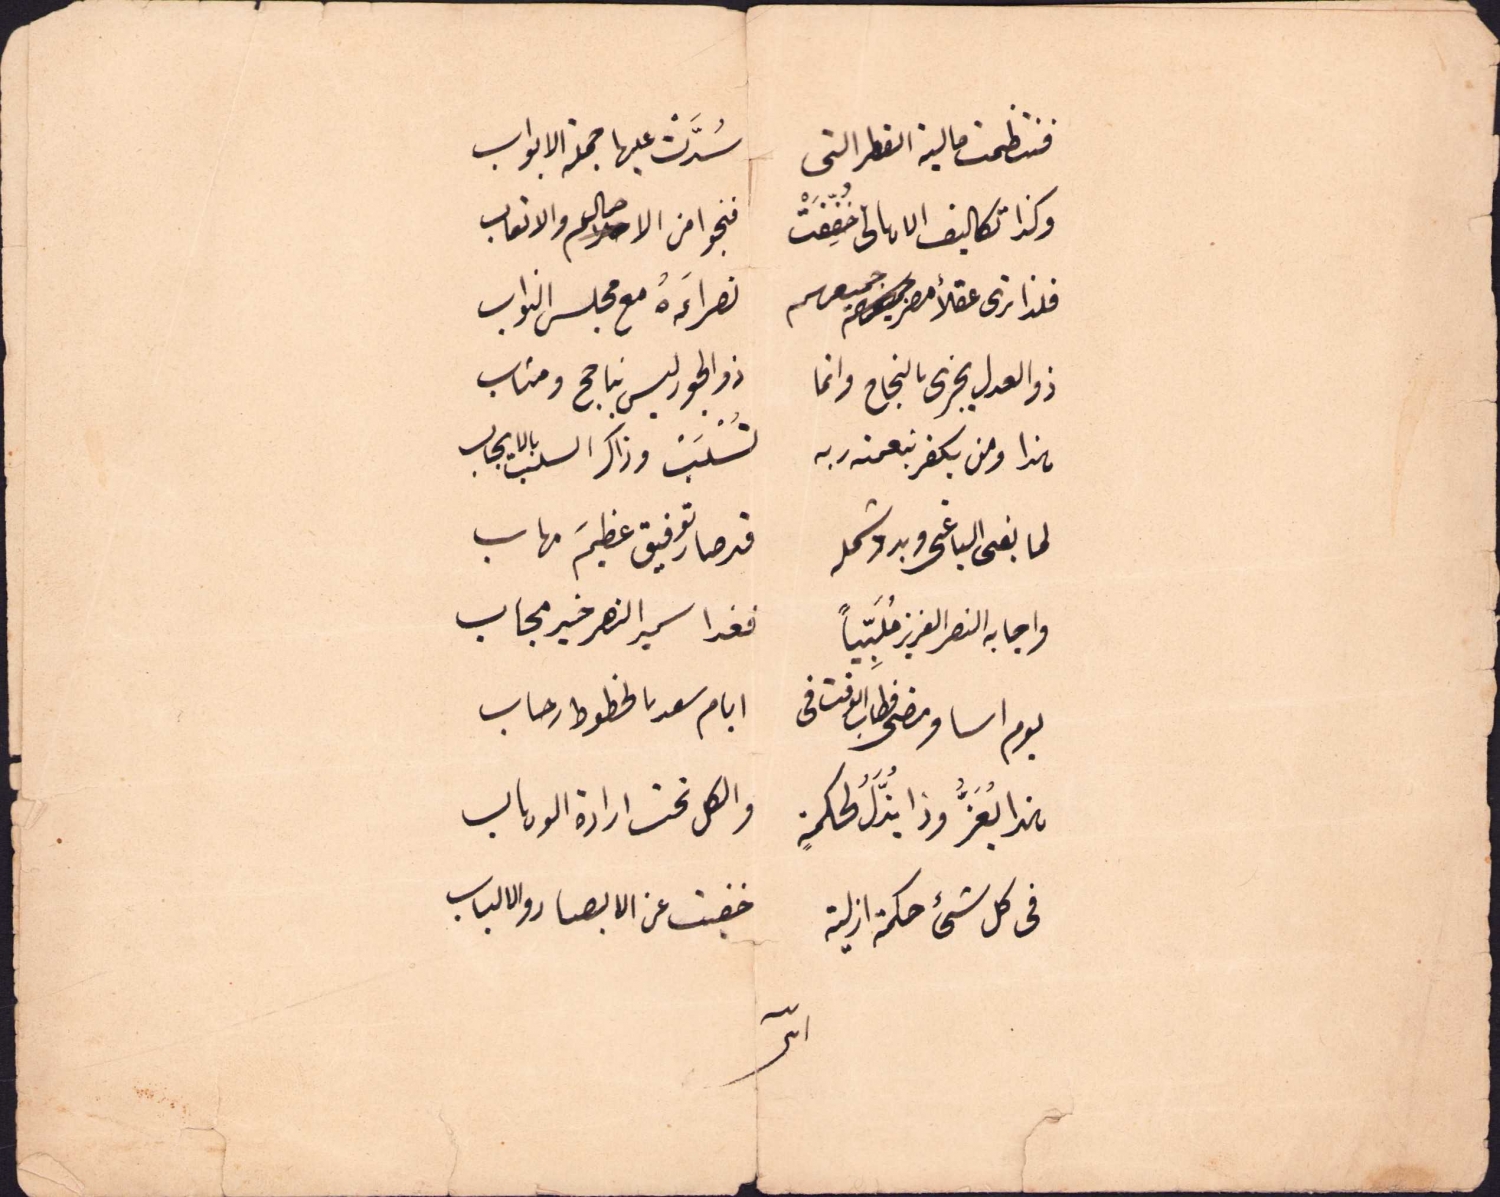 فتنظمت مالية القطر التى سُدَّتْ عليها جملة الابواب
وكذا تكاليف الاهالى خُفِّفَتْ فنجوا من الاحمال والاتعاب
فلذا ترى عقلأ مصر جميعهم نصراءَهُ مع مجلس النواب
ذو العدل يجزى بالنجاح وانما ذو الجور ليس بناجح ومثاب
هذا ومن يكفر بنعمة ربه تُسْلَبْ وذاكر السلب بالايجاب
لما بغى الباغى وبدد شمله قد صار توفيق عظيمَ مهاب
واجابه النصر العزيز مُلَبِّياً فغدا سمير النصر خير مجاب
يوم اسا ومضى فطاب الوقت فى ايام سعد بالحظوظ رحاب
هذا يُعَزُّ وذا يُذَلُّ لحكمةٍ والكل تحت ارادة الوهاب
فى كل شئ حكمة ازلية خفيت عن الابصار والالباب